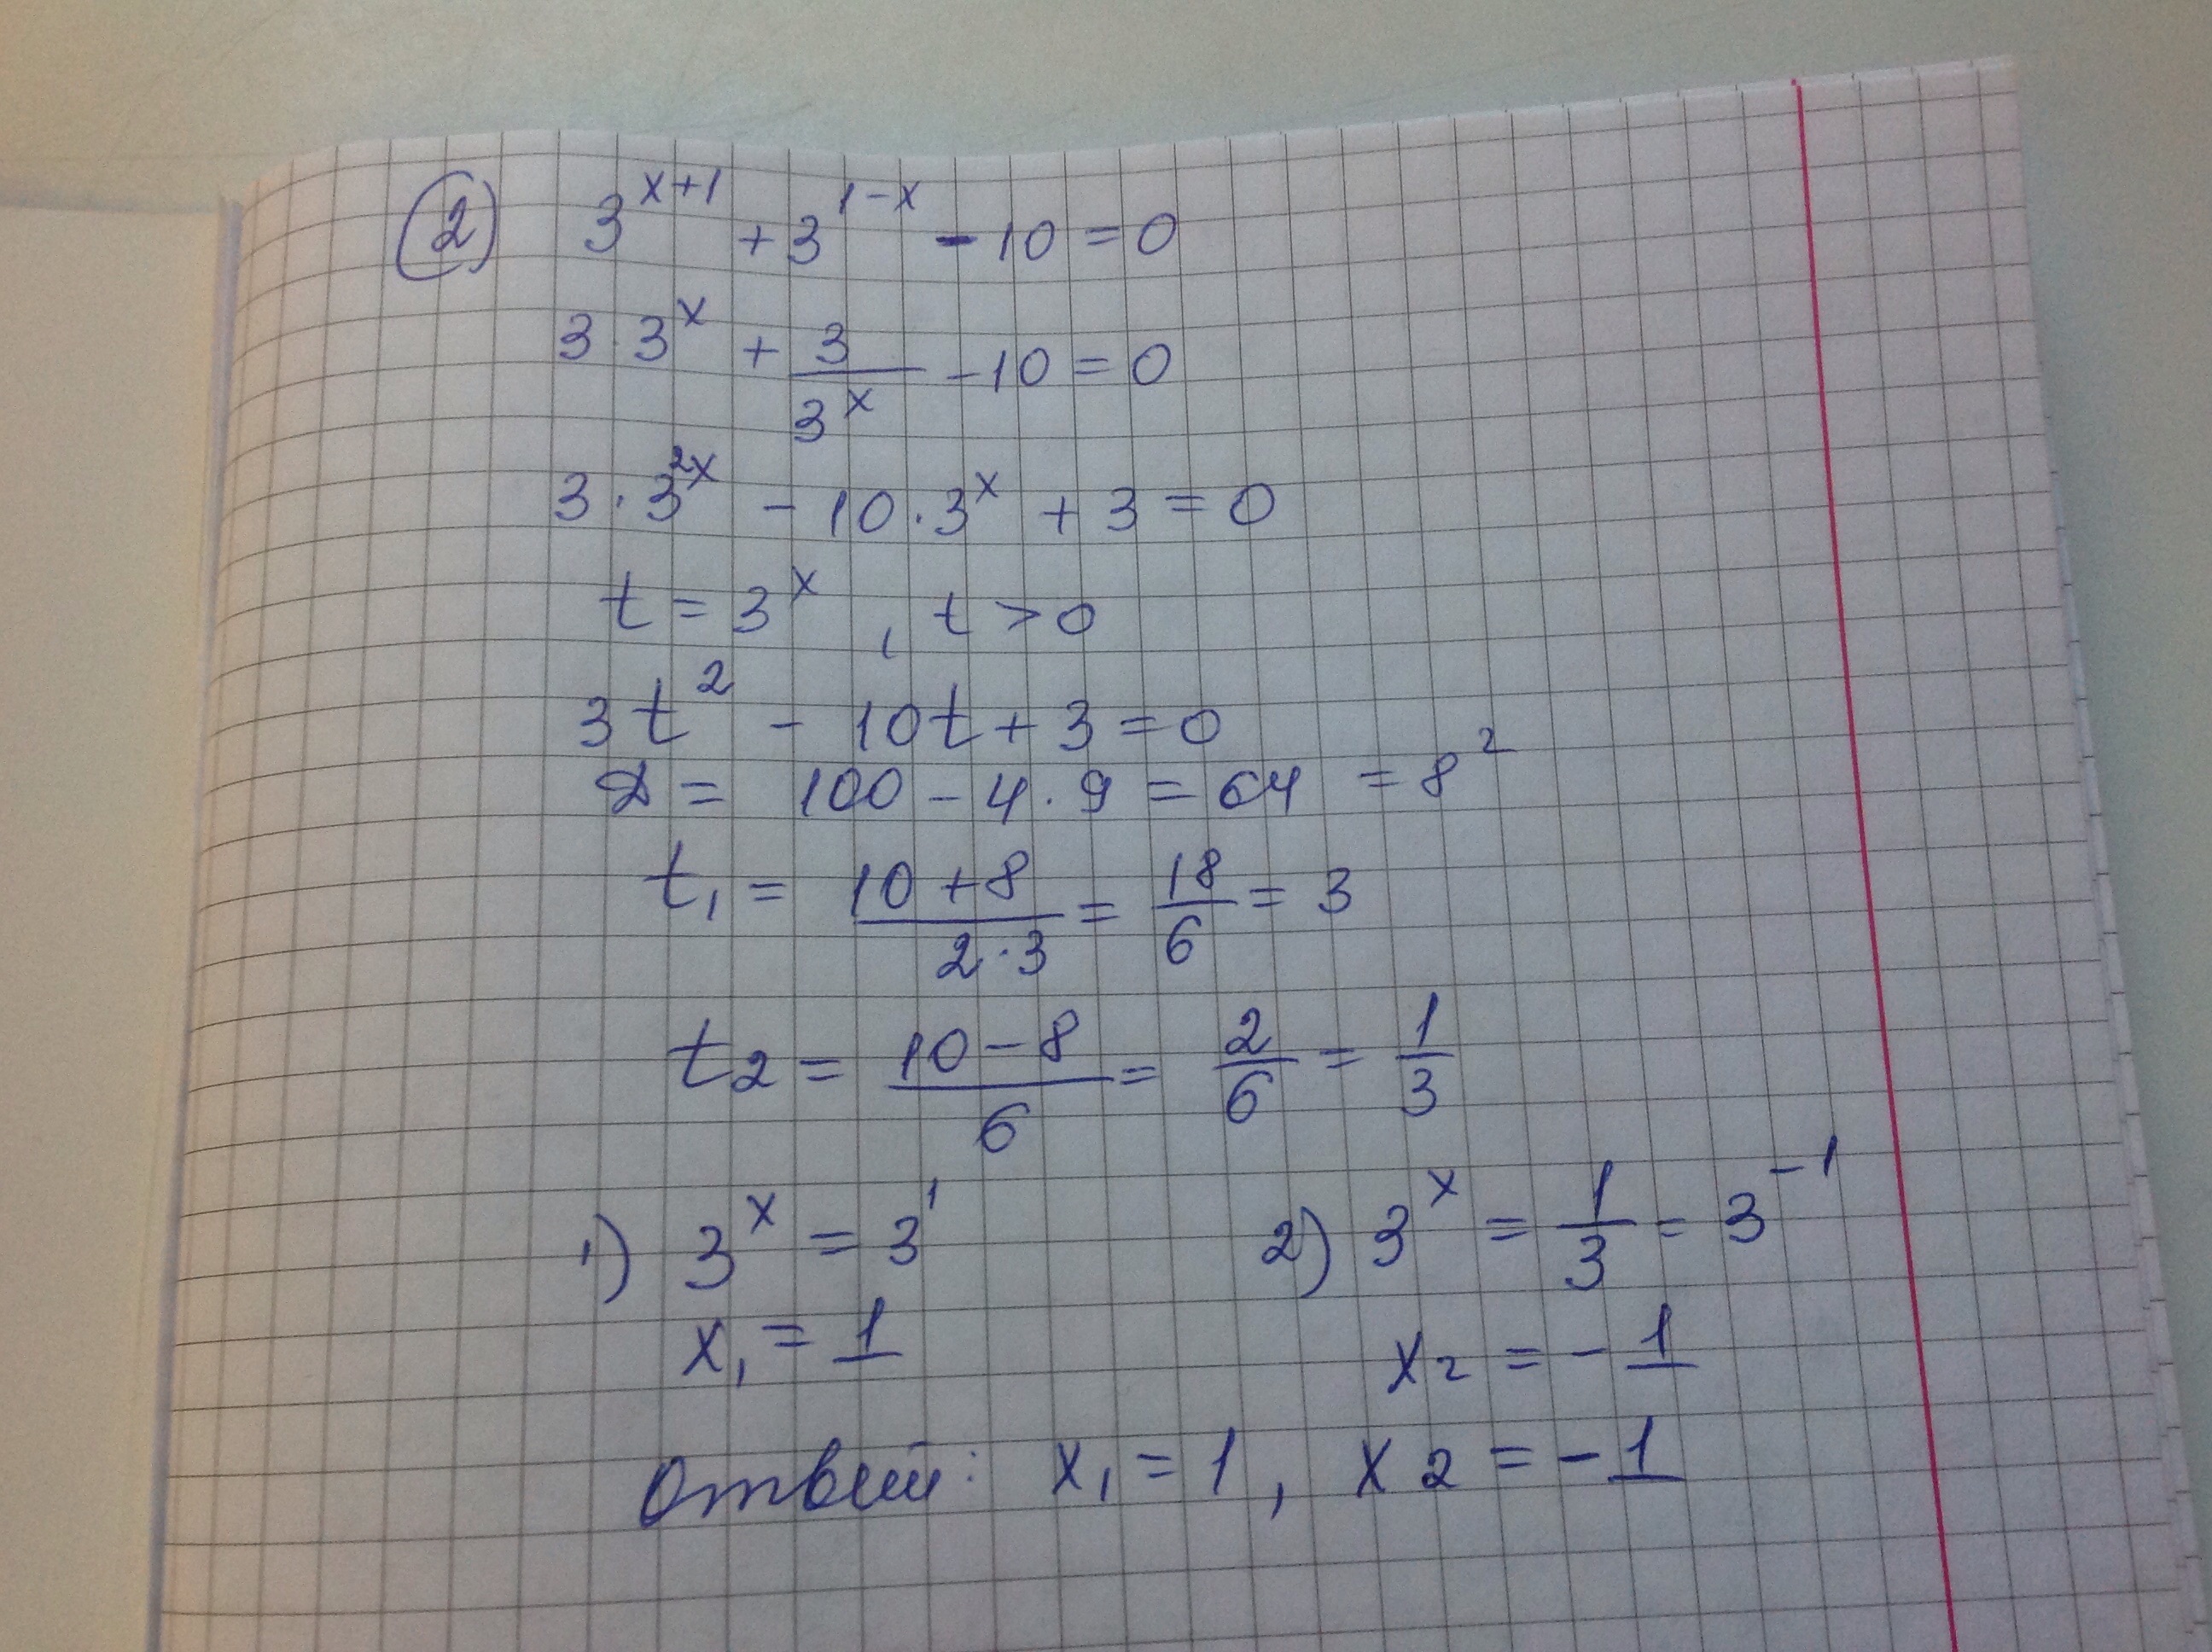 2) 3^(x+1) + 3^(1-x) - 10 = 0
3 · 3^x + 3/3^x - 10 = 0
3 · 3^(2x) - 10 · 3^x + 3 = 0
t = 3^x, t > 0
3t² - 10t + 3 = 0
D = 100 - 4 · 9 = 64 = 8²
t₁ = (10 + 8)/(2 · 3) = 18/6 = 3
t₂ = (10 - 8)/6 = 2/6 = 1/3
1) 3^x = 3^1 2) 3^x = 1/3 = 3^(-1)
x₁ = 1 x₂ = -1
Ответ: x₁ = 1, x₂ = -1